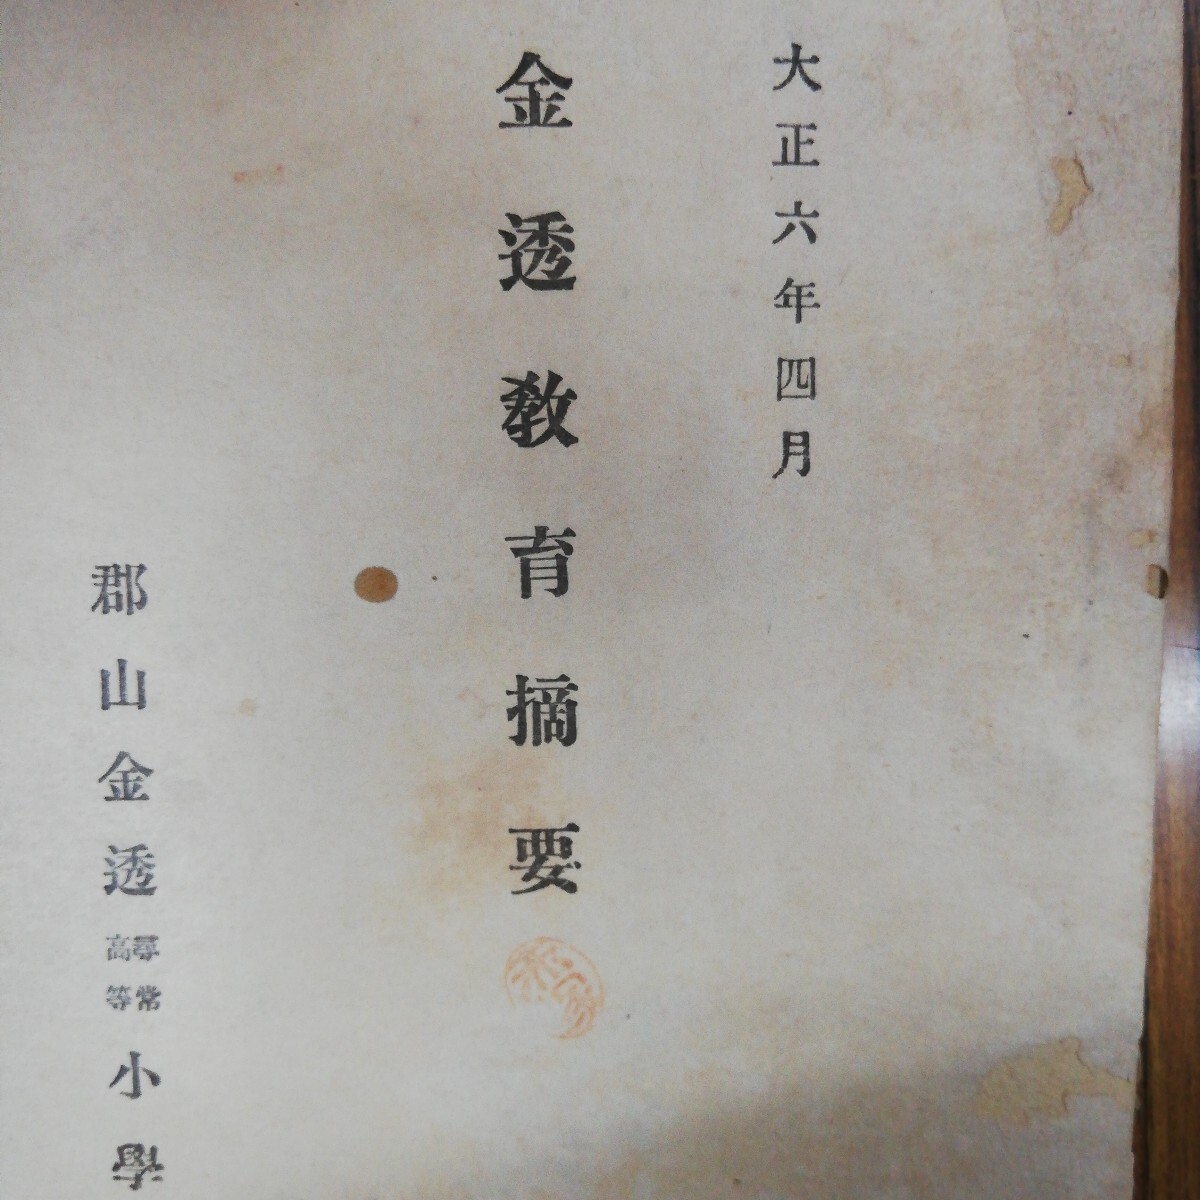 大正六年四月
金透教育摘要
郡山金透尋常高等小